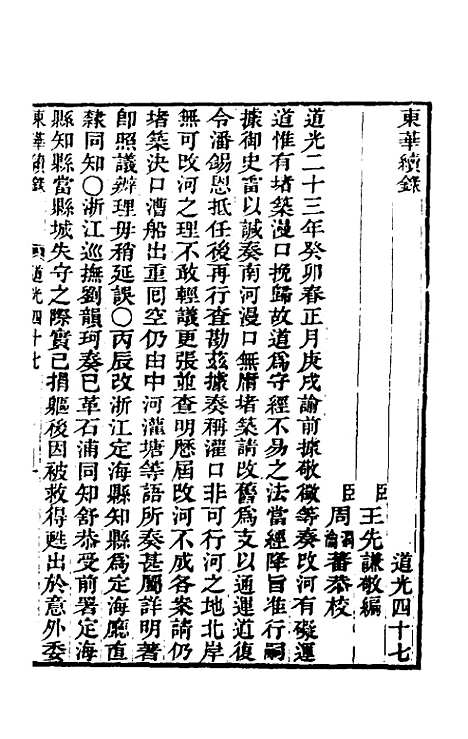 東華續錄
道光四十七
臣王先謙敬編
臣周潤蕃恭校
道光二十三年癸卯春正月庚戌諭前據敬徵等奏改河有礙運
道惟有堵築漫口挽歸故道爲守經不易之法當經降旨准行嗣
據御史雷以諴奏南河漫口無庸堵築請改舊爲支以通運道復
令潘錫恩抵任後再行查勘茲據奏稱灌口非可行河之地北岸
無可改河之理不敢輕議更張並查明歷屆改河不成各案請仍
堵築決口漕船出重囘空仍由中河灌塘等語所奏甚屬詳明著
卽照議辦理毋稍延誤〇丙辰改浙江定海縣知縣爲定海廳直
隸同知〇浙江巡撫劉韻珂奏已革石浦同知舒恭受前署定海
縣知縣當縣城失守之際實已捐軀後因被救得甦出於意外委
東華續錄
道光四十七
一